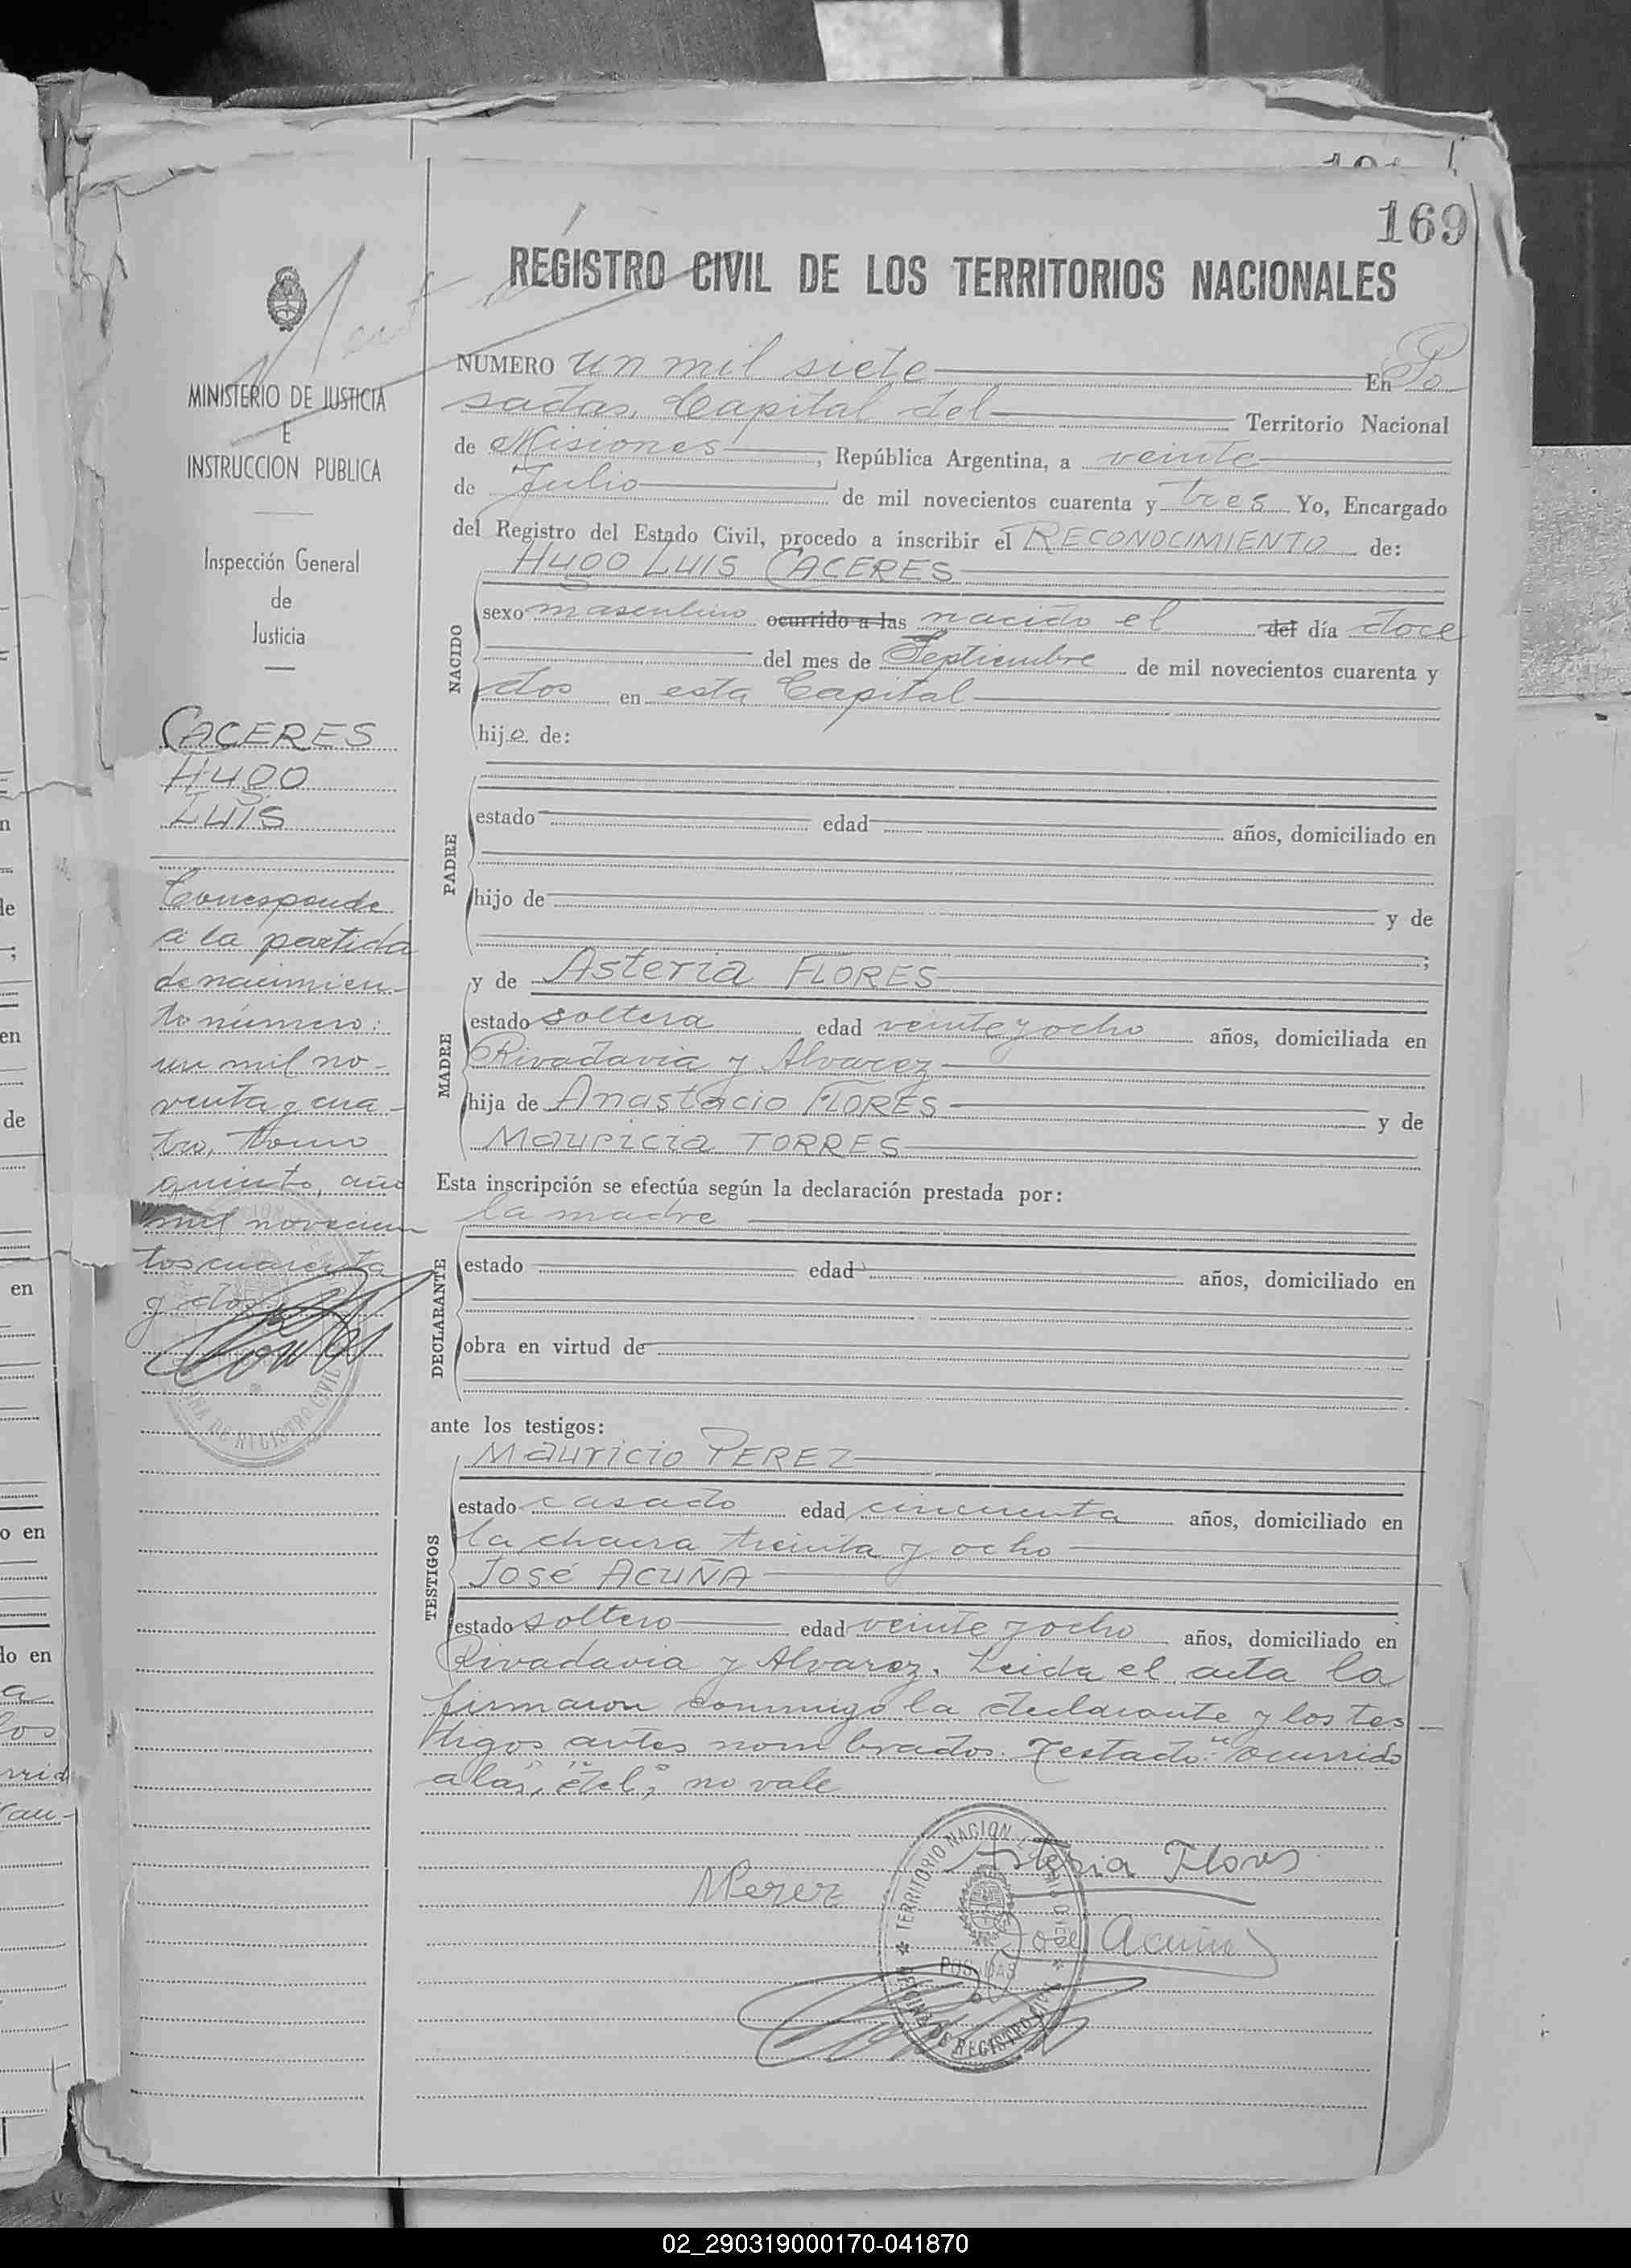 169
REGISTRO CIVIL DE LOS TERRITORIOS NACIONALES
MINISTERIO DE JUSTICIA
E
INSTRUCCION PUBLICA
Inspección General
de
Justicia
CACERES
HUGO
LUIS
Corresponde
a la partida
de nacimien-
to número:
un mil no-
venta y cua-
tro, tomo
quinto, año
mil novecien
tos cuarenta
y dos
NUMERO un mil siete En Po
sadas, Capital del Territorio Nacional
de Misiones, República Argentina, a veinte
de Julio de mil novecientos cuarenta y tres Yo, Encargado
del Registro del Estado Civil, procedo a inscribir el RECONOCIMIENTO de:
HUGO LUIS CACERES
NACIDO
sexo masculino ocurrido a las nacido el del día doce
del mes de Septiembre de mil novecientos cuarenta y
dos en esta Capital
hijo de:
PADRE
estado edad años, domiciliado en
hijo de y de
;
y de Asteria FLORES
MADRE
estado soltera edad veinte y ocho años, domiciliada en
Rivadavia y Alvarez
hija de Anastacio FLORES y de
Mauricia TORRES
Esta inscripción se efectúa según la declaración prestada por:
la madre
DECLARANTE
estado edad años, domiciliado en
obra en virtud de
ante los testigos:
Mauricio PEREZ
TESTIGOS
estado casado edad cincuenta años, domiciliado en
la chacra treinta y ocho
José ACUÑA
estado soltero edad veinte y ocho años, domiciliado en
Rivadavia y Alvarez. Leida el acta la
firmaron conmigo la declarante y los tes-
tigos antes nombrados. Testado: "ocurrido
a las", "del", no vale
Asteria Flores
MPerez
José Acuña
TERRITORIO NACIONAL
POSADAS
OFICINA DE REGISTRO CIVIL
02_290319000170-041870